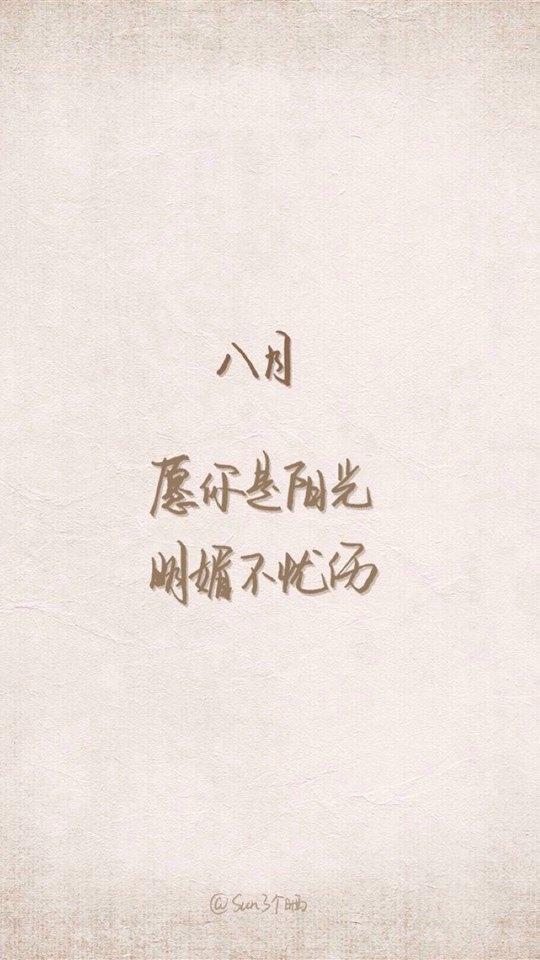 八月
愿你是阳光
明媚不忧伤
@Sun3个晒